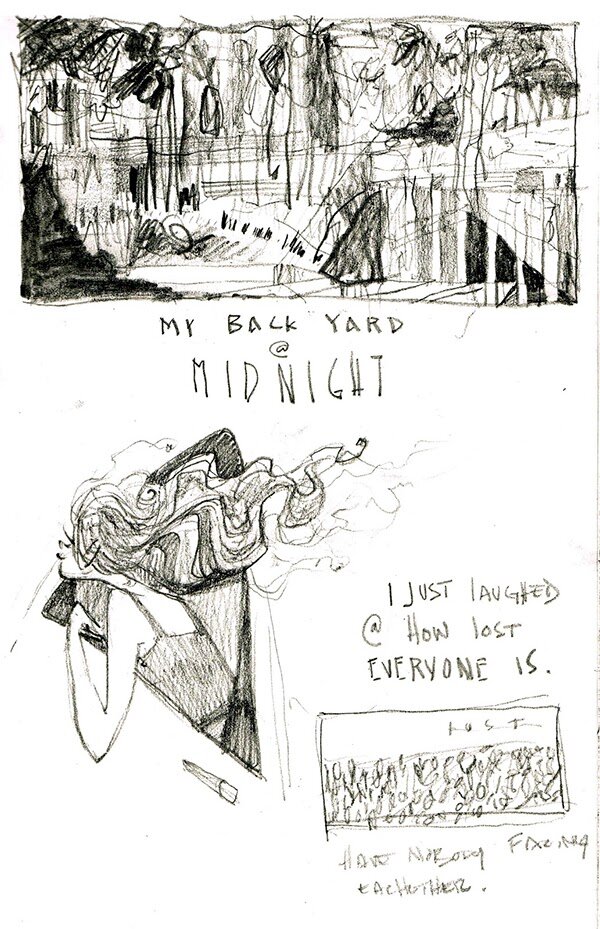 MY BACK YARD
@
MIDNIGHT
I JUST LAUGHED
@ HOW LOST
EVERYONE IS.
LOST
HAVE NOBODY FACING
EACHOTHER.